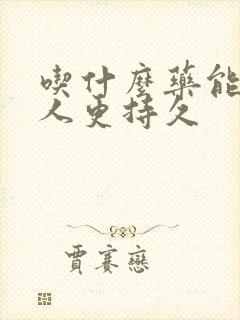 喫什麼藥能
人更持久
賈賽戀